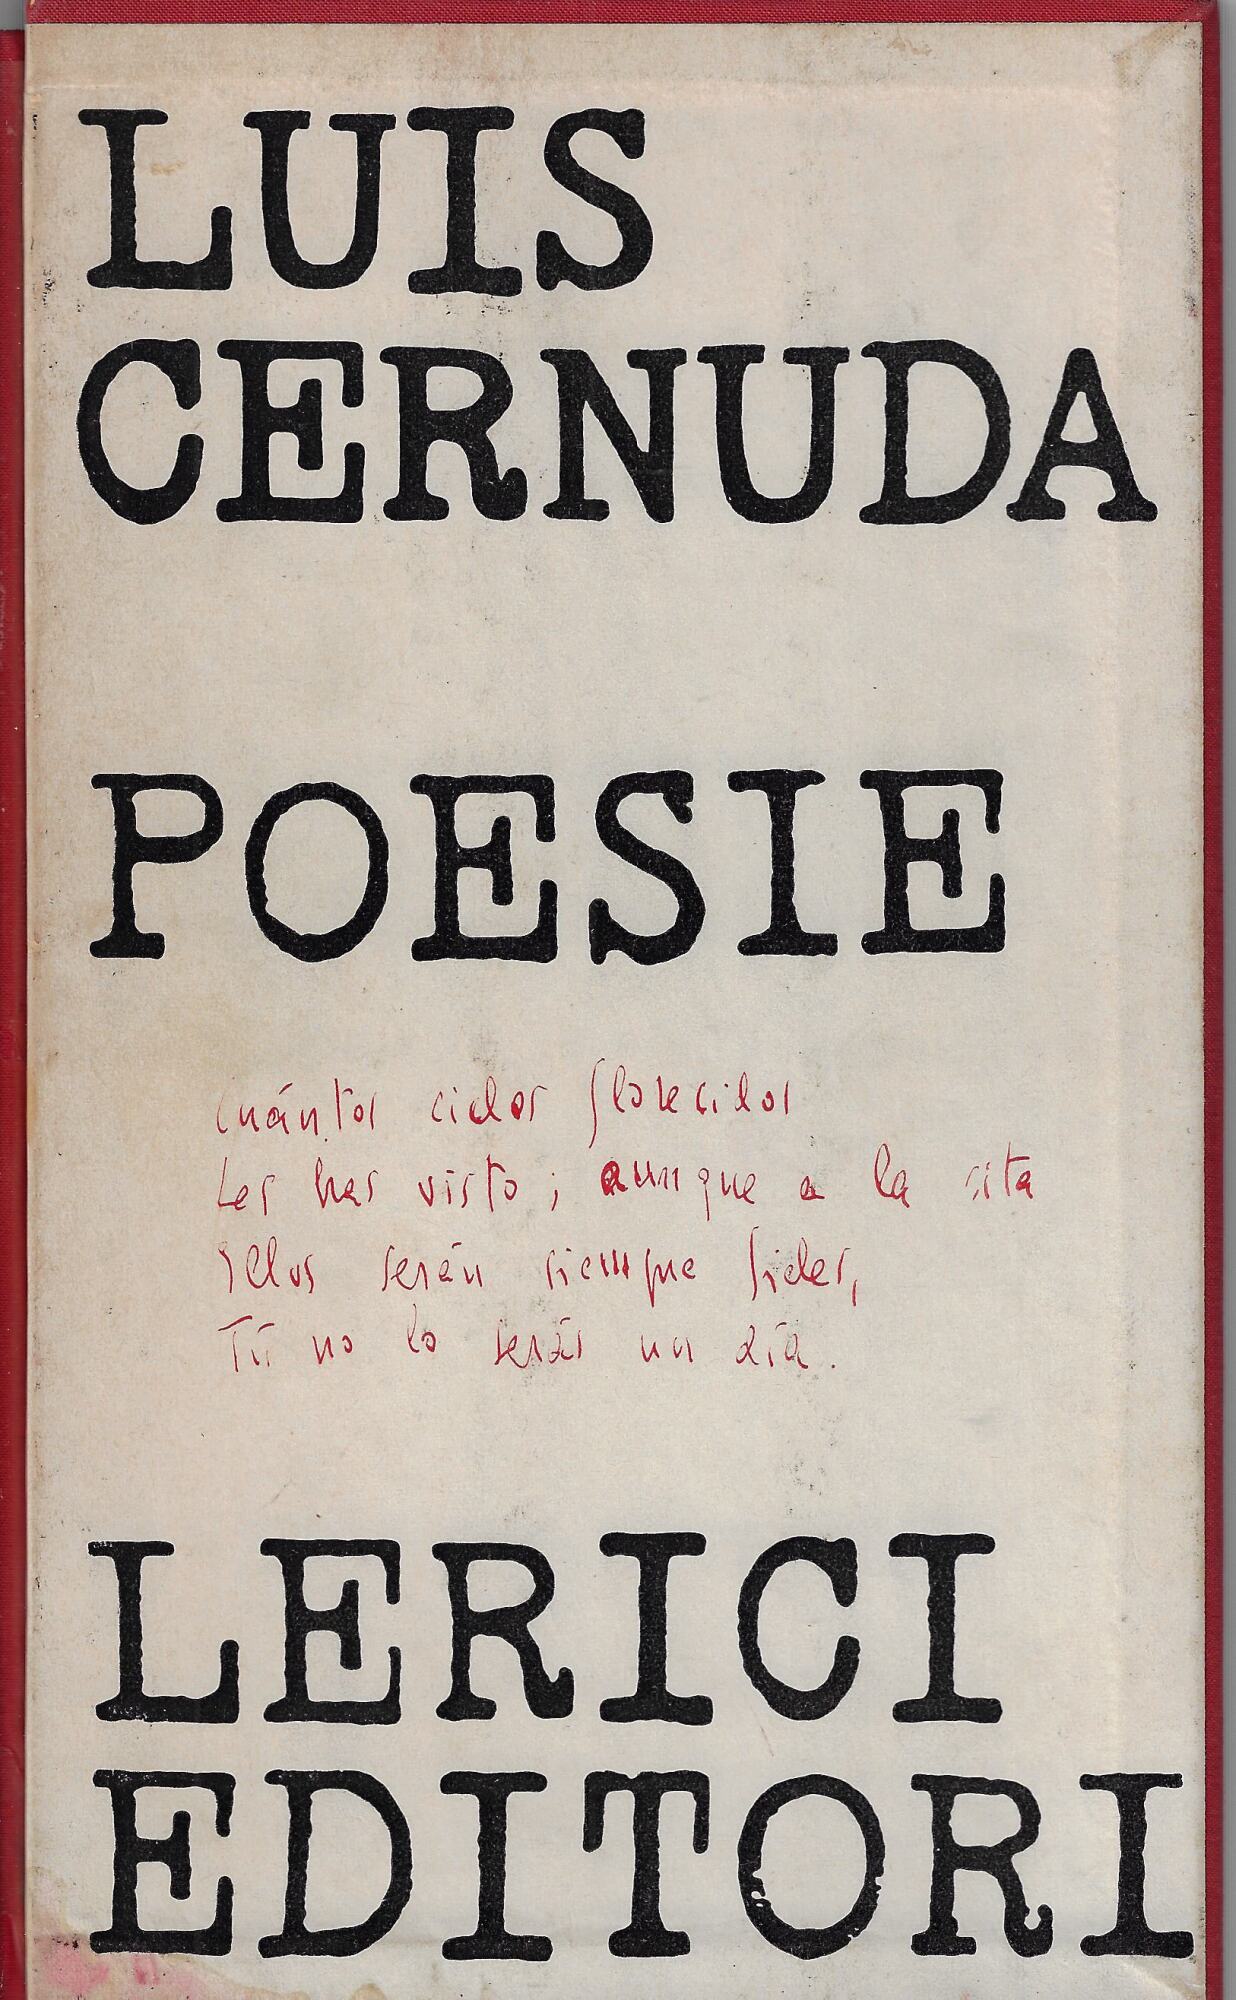 LUIS
CERNUDA
POESIE
cuántos ciclos florecidos
Les has visto; aunque a la cita
Ellos serán siempre fieles,
Tú no lo serás un día.
LERICI
EDITORI